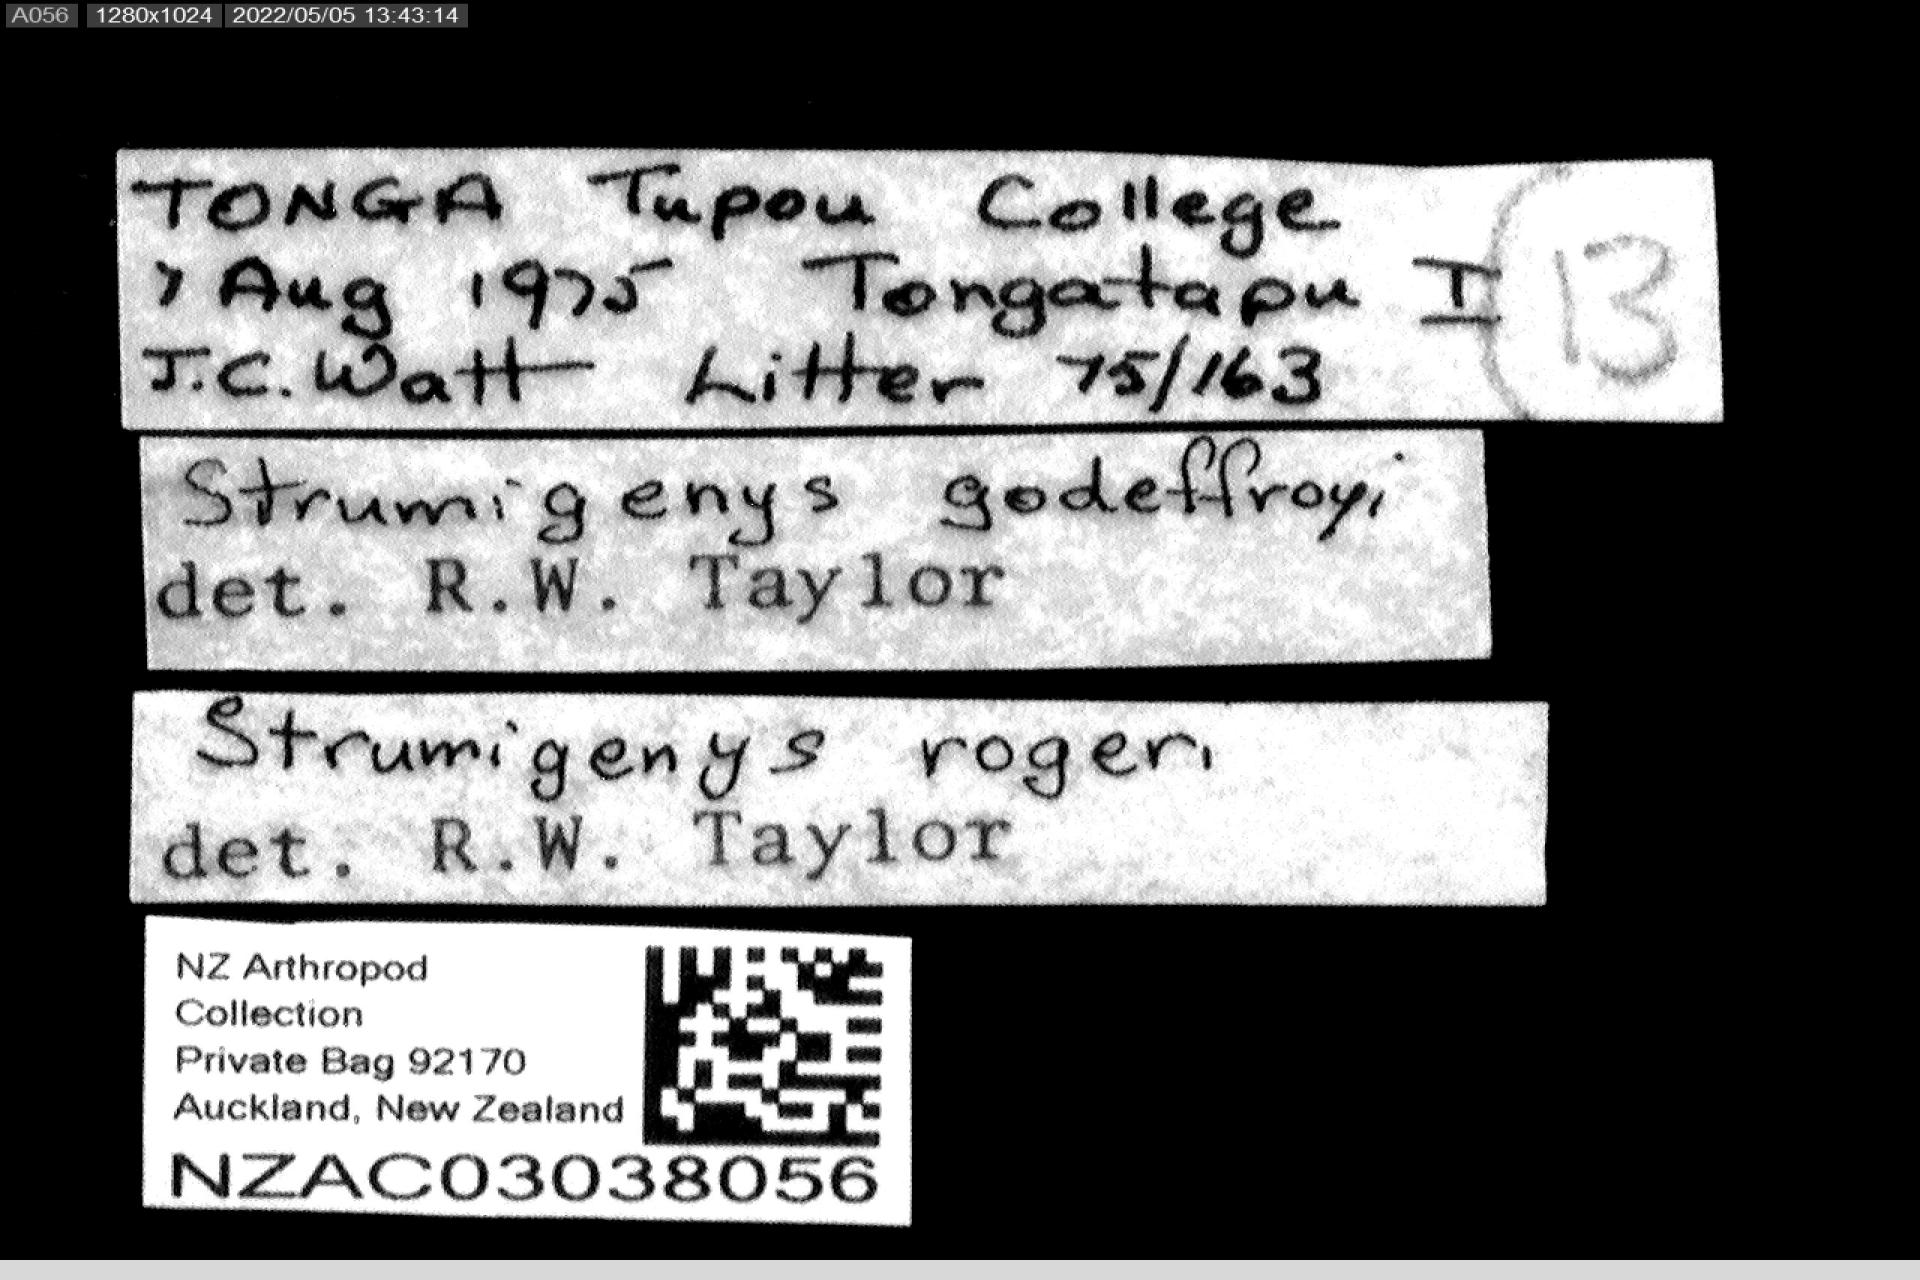 A056 1280x1024 2022/05/05 13:43:14
TONGA Tupou College
7 Aug 1975 Tongatapu I
13
J.C. Watt Litter 75/163
Strumigenys godeffroyi
det. R.W. Taylor
Strumigenys rogeri
det. R.W. Taylor
NZ Arthropod
Collection
Private Bag 92170
Auckland, New Zealand
NZAC03038056